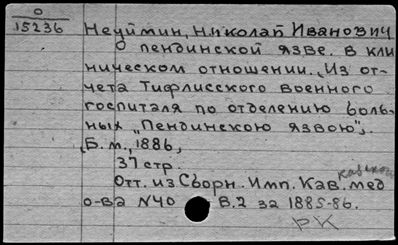 О
15236
Неуймин, Николай Иванович
О пендинской язве. В кли
ническом отношении. „Из от-
чета Тифлисского военного
госпиталя по отделению боль-
ных „Пендинскою язвою".
[Б. м., 1886,
37 стр.
Отт. из Сборн. Имп. Кав. мед
кавказск
о-ва № 40 В.2 за 1885-86.
РК